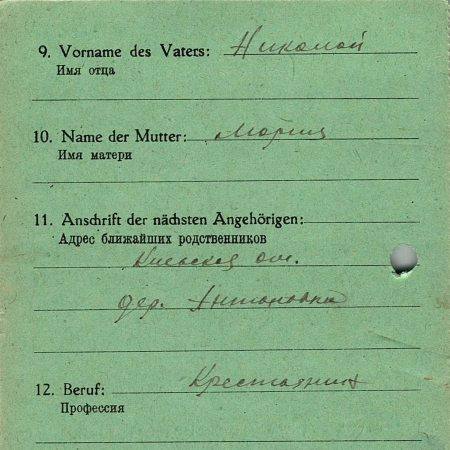 9. Vorname des Vaters: Николай
Имя отца
10. Name der Mutter: Мария
Имя матери
11. Anschrift der nächsten Angehörigen:
Адрес ближайших родственников
Киевская обл.
дер. Антоновка
12. Beruf: Крестьянин
Профессия